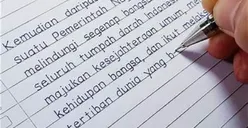 Kemudian daripa
suatu Pemerintah N
melindungi segenap bangsa
seluruh tumpah darah Indonesia
majukan kesejahteraan umum, me
kehidupan bangsa, dan ikut melaks
tertiban dunia yang b